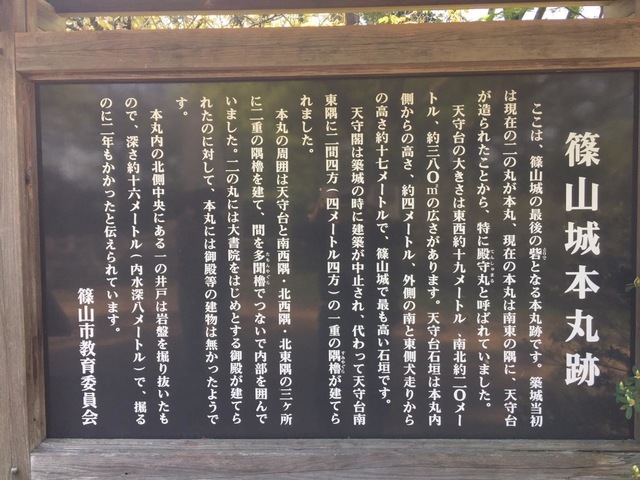 篠山城本丸跡
ここは、篠山城の最後の砦となる本丸跡です。築城当初
は現在の二の丸が本丸、現在の本丸は南東の隅に、天守台
が造られたことから、特に殿守丸と呼ばれていました。
天守台の大きさは東西約十九メートル、南北約二〇メー
トル、約三八〇㎡の広さがあります。天守台石垣は本丸内
側からの高さ、約四メートル、外側の南と東側犬走りから
の高さ約十七メートルで、篠山城で最も高い石垣です。
天守閣は築城の時に建築が中止され、代わって天守台南
東隅に二間四方(四メートル四方)の一重の隅櫓が建てら
れました。
本丸の周囲は天守台と南西隅・北西隅・北東隅の三ヶ所
に二重の隅櫓を建て、間を多聞櫓でつないで内部を囲んで
いました。二の丸には大書院をはじめとする御殿が建てら
れたのに対して、本丸には御殿等の建物は無かったようで
す。
本丸内の北側中央にある一の井戸は岩盤を掘り抜いたも
ので、深さ約十六メートル(内水深八メートル)で、掘る
のに二年もかかったと伝えられています。
篠山市教育委員会